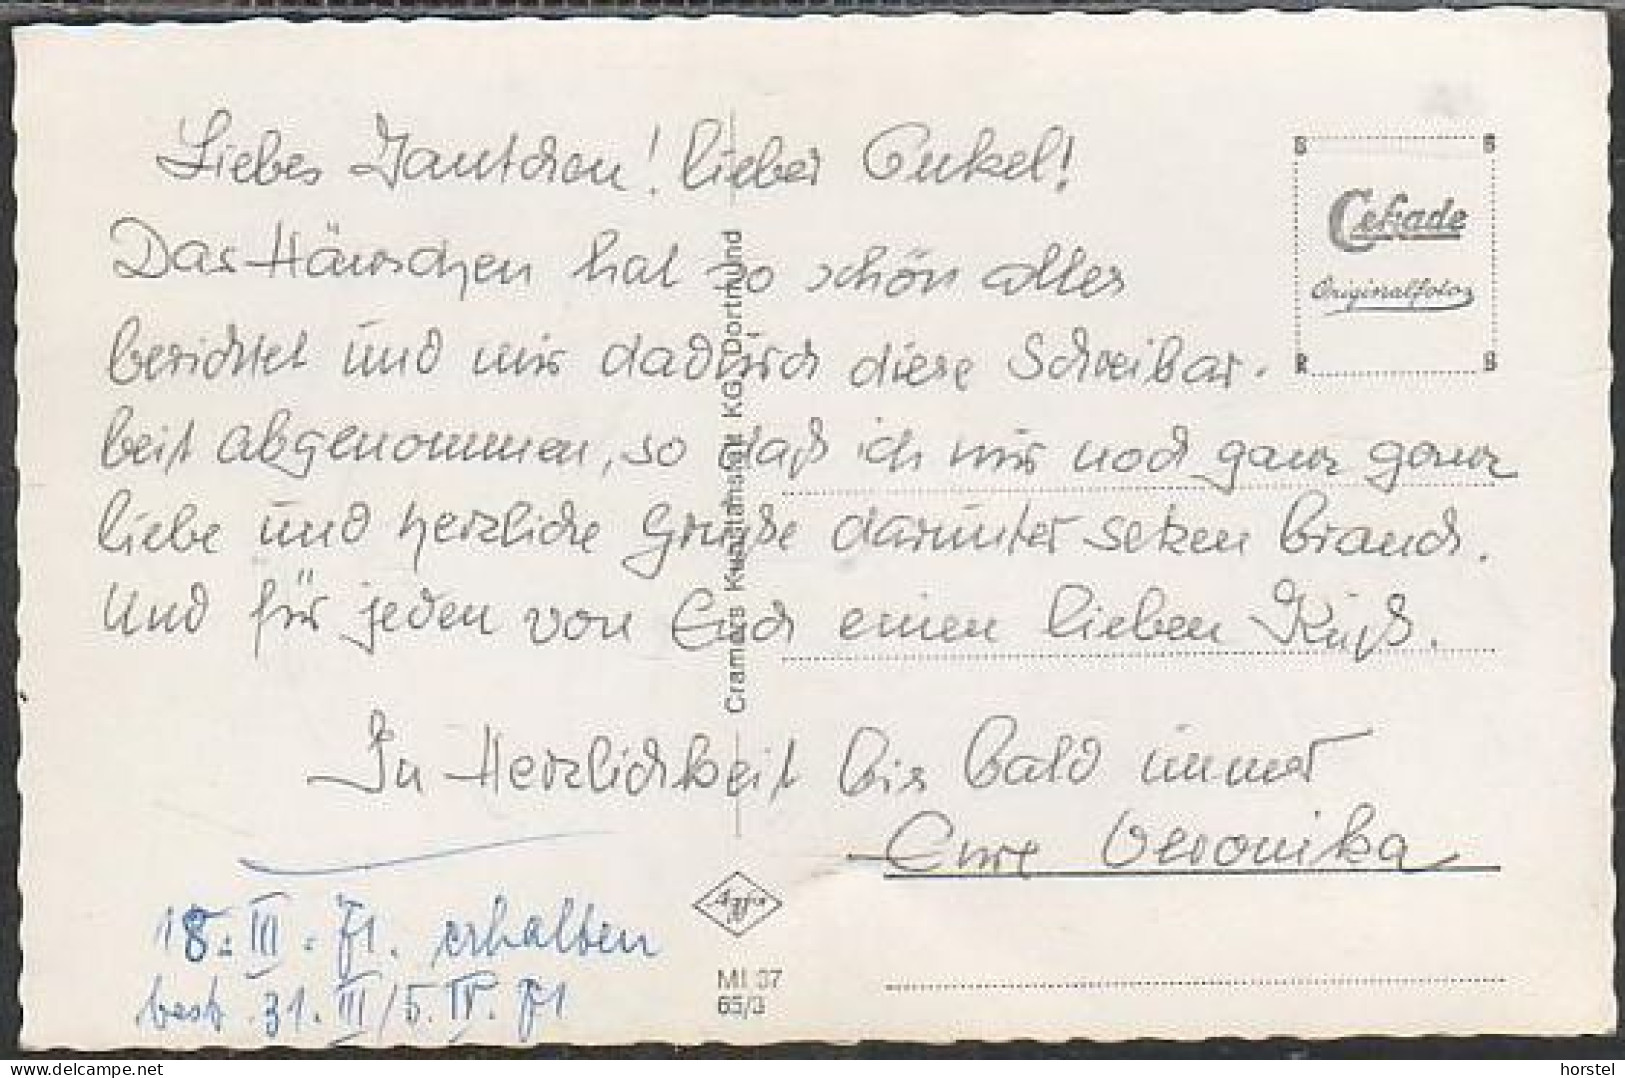 Liebes Tantchen! lieber Onkel!
Das Häuschen hat so schön alles
berichtet und mir dadurch diese Schreibar-
beit abgenommen, so daß ich mir noch ganz ganz
liebe und herzliche Grüße darunter setzen brauch.
Und für jeden von Euch einen lieben Kuß.
In Herzlichkeit bis bald immer
Eure Veronika
18. III. 71. erhalten
best. 31. III/5. IV. 71
Cramers Kunstanstalt KG, Dortmund
Cekade
Originalfoto
Agfa
MI 37
65/3
horstel